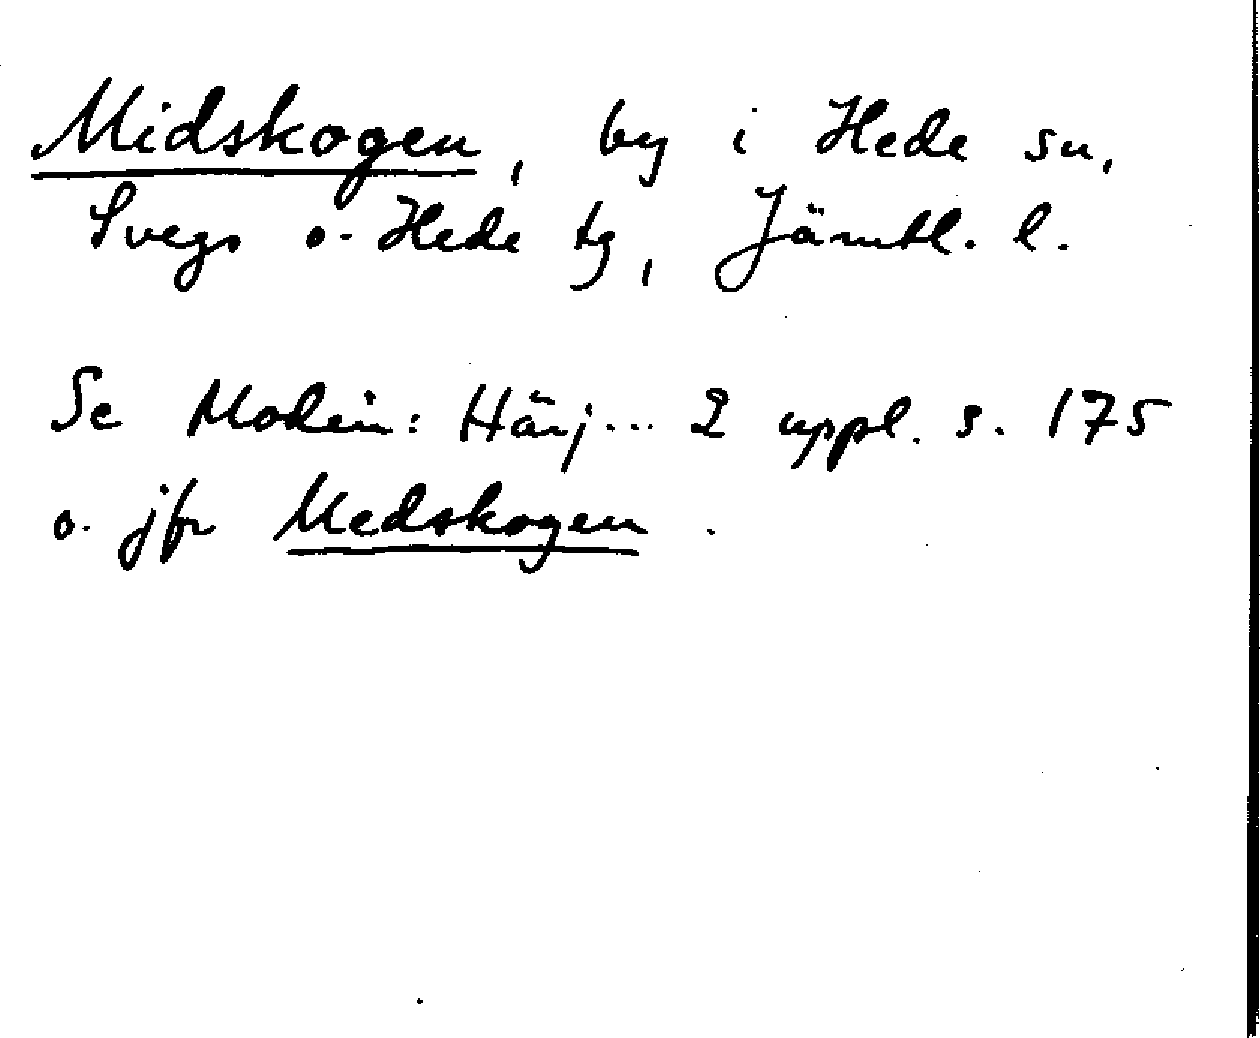 Midskogen, by i Hede sn,
Svegs o. Hede tg, Jämtl. l.
Se Modin: Härj... 2 uppl. s. 175
o. jfr Medskogen.